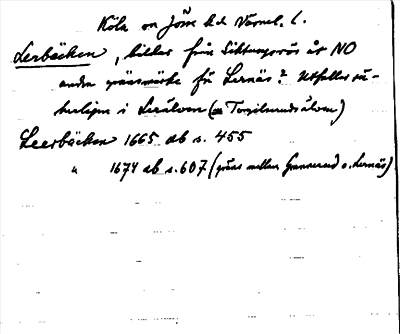 Köla sn Jösse hd Värml. l.
Lerbäcken, bildar från Sittungsrös åt NO
andra gränsmärke för Lernäs? Utfaller sä-
kerligen i Lerälven (= Torgilsrudsälven)
Leerbäcken 1665 ab s. 455
" 1674 ab s. 607 (gräns mellan Grannerud o. Lernäs)